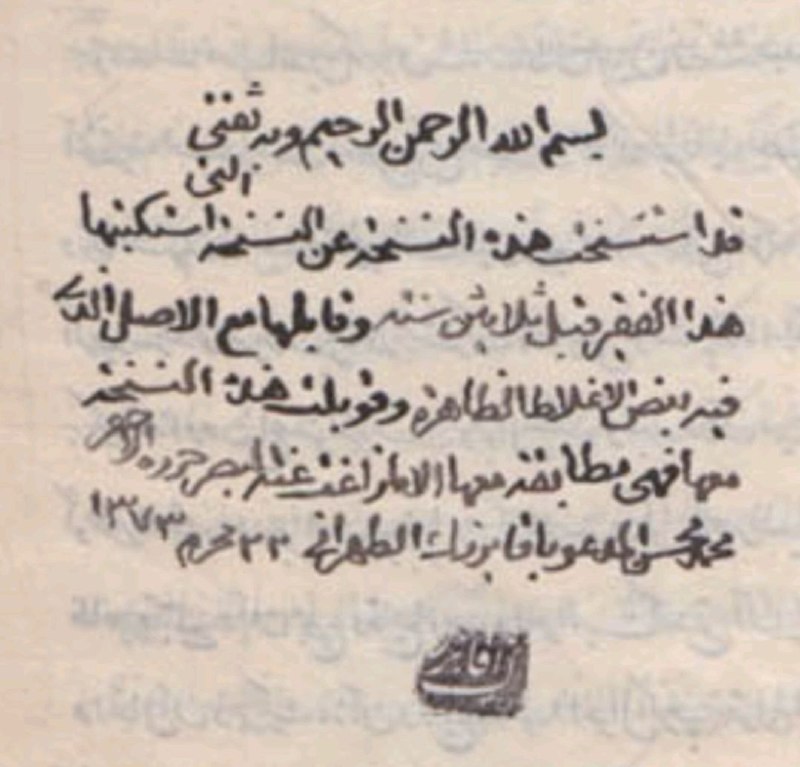 بسم الله الرحمن الرحيم وبه ثقتي
قد استنسخت هذه النسخة عن النسخة التي استكتبها
هذا الفقير قبل ثلاثين سنة وقابلها مع الاصل الذي
فيه بعض الاغلاط الظاهرة وقوبلت هذه النسخة
معها فهي مطابقة معها الا ما زاغت عنه البصر حرره الاحقر
محمد محسن المدعو باقا بزرك الطهراني ٢٣ محرم ١٣٧٣